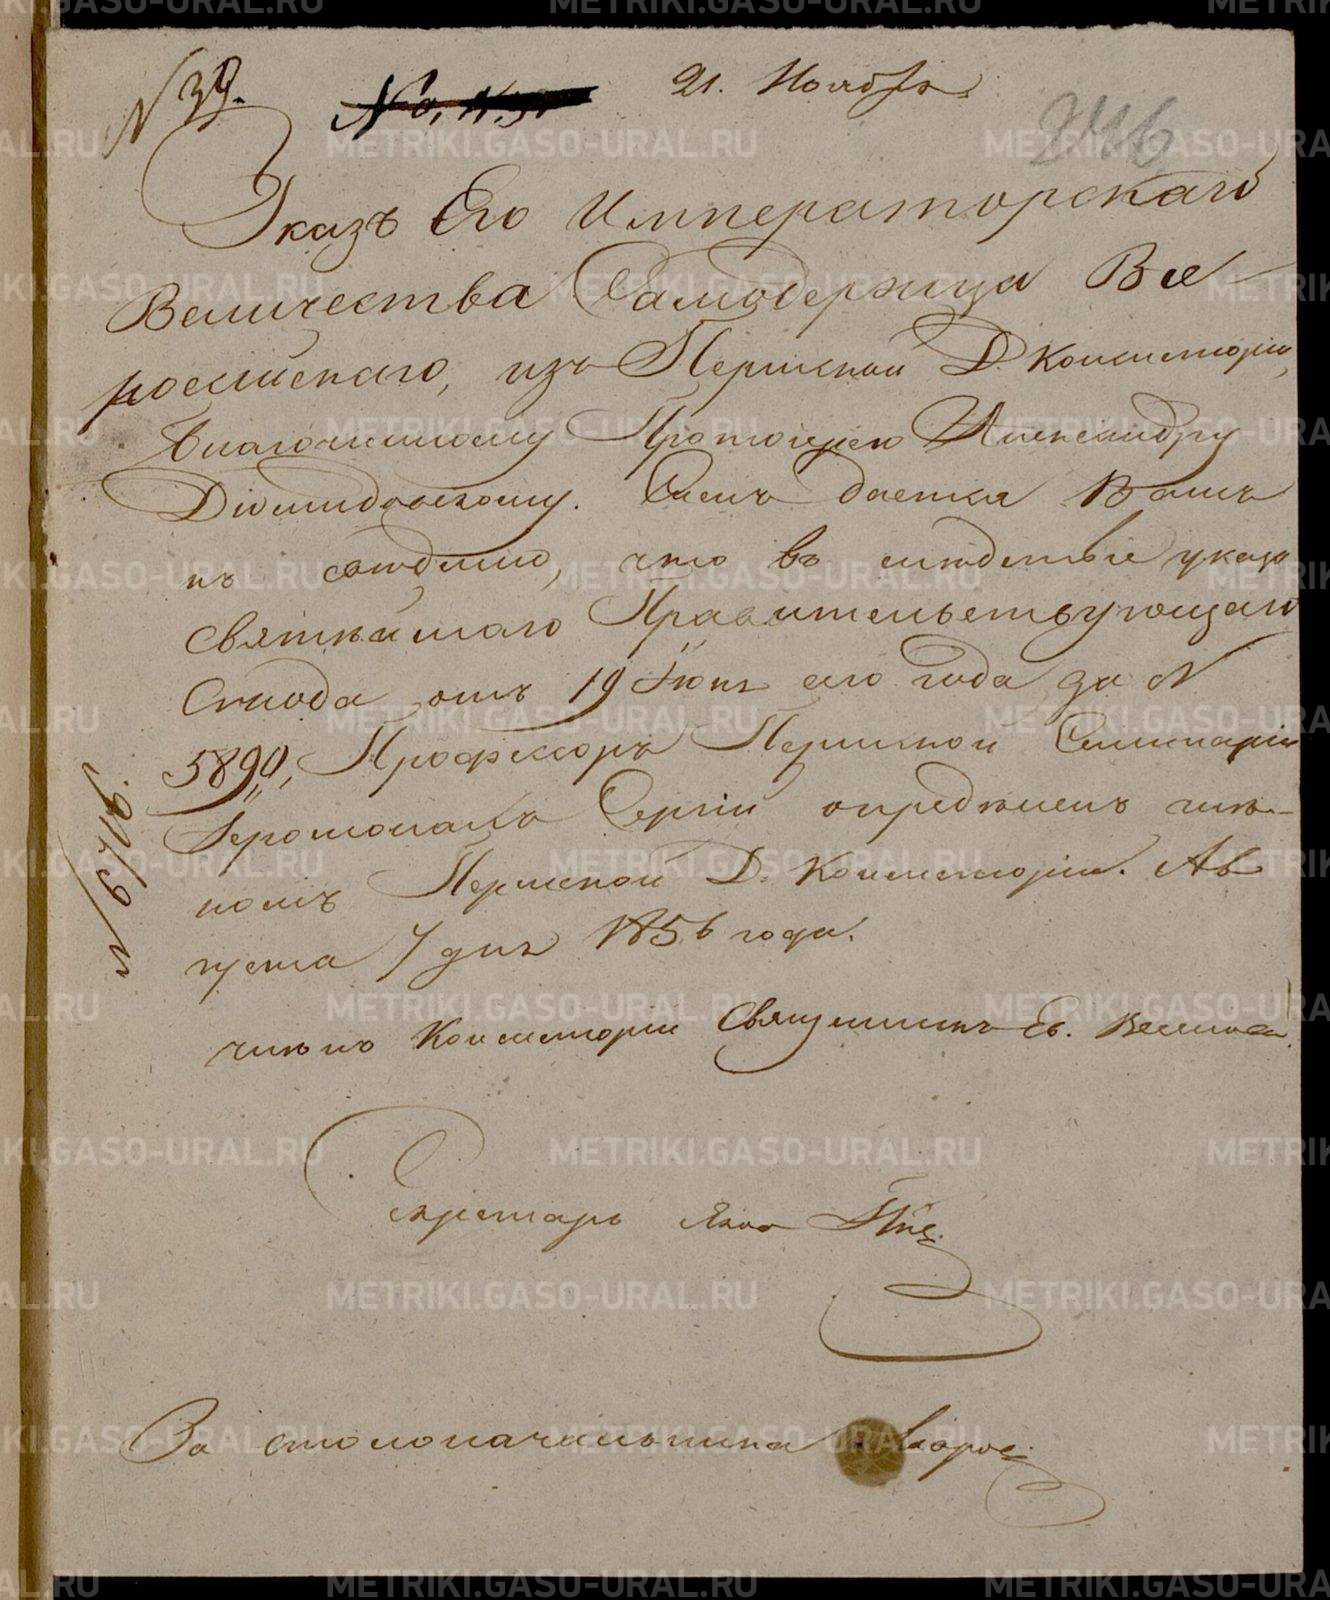 N 39.
21. Ноября
246
Указъ Его Императорскаго
Величества Самодержца Все
россійскаго, изъ Пермской Д. Консисторіи,
Благочинному Протоіерею Александру
Діомидовскому. Симъ дается Вамъ
къ свѣдѣнію, что въ слѣдствіе указа
Святѣйшаго Правительствующаго
Сѵнода отъ 19 Іюня сего года за N
5890, Профессоръ Пермской Семинаріи
Іеромонахъ Сергій опредѣленъ чле-
номъ Пермской Д. Консисторіи. Ав
густа 7 дня 1856 года.
N 6719.
Членъ Консисторіи Священникъ Ев.
Секретарь
За столоначальника
METRIKI.GASO-URAL.RU